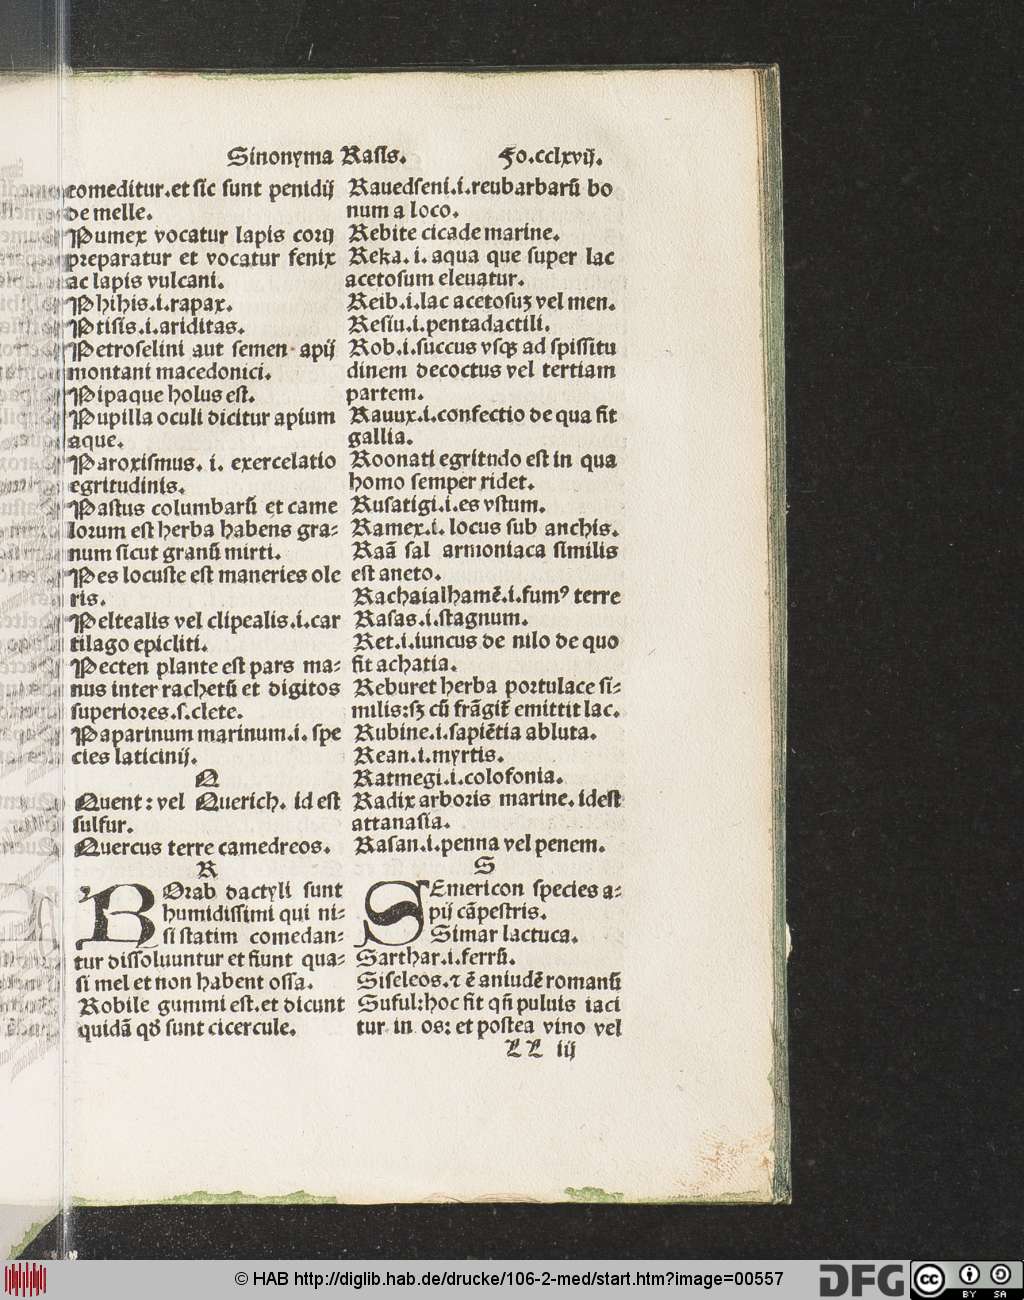 Sinonyma Rasis. Fo.cclxvij.
comeditur.et sic sunt penidij
de melle.
Pumex vocatur lapis corij
preparatur et vocatur fenix
ac lapis vulcani.
Phihis.i.rapax.
Ptisis.i.ariditas.
Petroselini aut semen apij
montani macedonici.
Pipaque holus est.
Pupilla oculi dicitur apium
aque.
Paroxismus. i. exercelatio
egritudinis.
Pastus columbarū et came
lorum est herba habens gra-
num sicut granū mirti.
Pes locuste est maneries ole
ris.
Peltealis vel clipealis.i.car
tilago epicliti.
Pecten plante est pars ma-
nus inter rachetū et digitos
superiores.s.clete.
Paparinum marinum.i. spe
cies laticinij.
Q
Quent: vel Querich. id est
sulfur.
Quercus terre camedreos.
R
r BOrab dactyli sunt
humidissimi qui ni-
si statim comedan-
tur dissoluuntur et fiunt qua-
si mel et non habent ossa.
Robile gummi est.et dicunt
quidā qđ sunt cicercule.
Rauedseni.i.reubarbarū bo
num a loco.
Rebite cicade marine.
Reka. i. aqua que super lac
acetosum eleuatur.
Reib.i.lac acetosuꝫ vel men.
Resiu.i.pentadactili.
Rob.i.succus vsqꝫ ad spissitu
dinem decoctus vel tertiam
partem.
Rauux.i.confectio de qua fit
gallia.
Roonati egritudo est in qua
homo semper ridet.
Rusatigi.i.es vstum.
Ramex.i. locus sub anchis.
Raā sal armoniaca similis
est aneto.
Rachaialhamē.i.fumꝰ terre
Rasas.i.stagnum.
Ret.i.iuncus de nilo de quo
fit achatia.
Reburet herba portulace si-
milis:sꝫ cū frāgit̄ emittit lac.
Rubine.i.sapiētia abluta.
Rean.i.myrtis.
Ratmegi.i.colofonia.
Radix arboris marine. idest
attanasia.
Rasan.i.penna vel penem.
S
SEmericon species a-
pij cāpestris.
Simar lactuca.
Sarthar.i.ferrū.
Siseleos.⁊ ē aniudē romanū
Suful:hoc fit qñ puluis iaci
tur in os: et postea vino vel
LL iij
© HAB http://diglib.hab.de/drucke/106-2-med/start.htm?image=00557
DFG
cc
BY SA